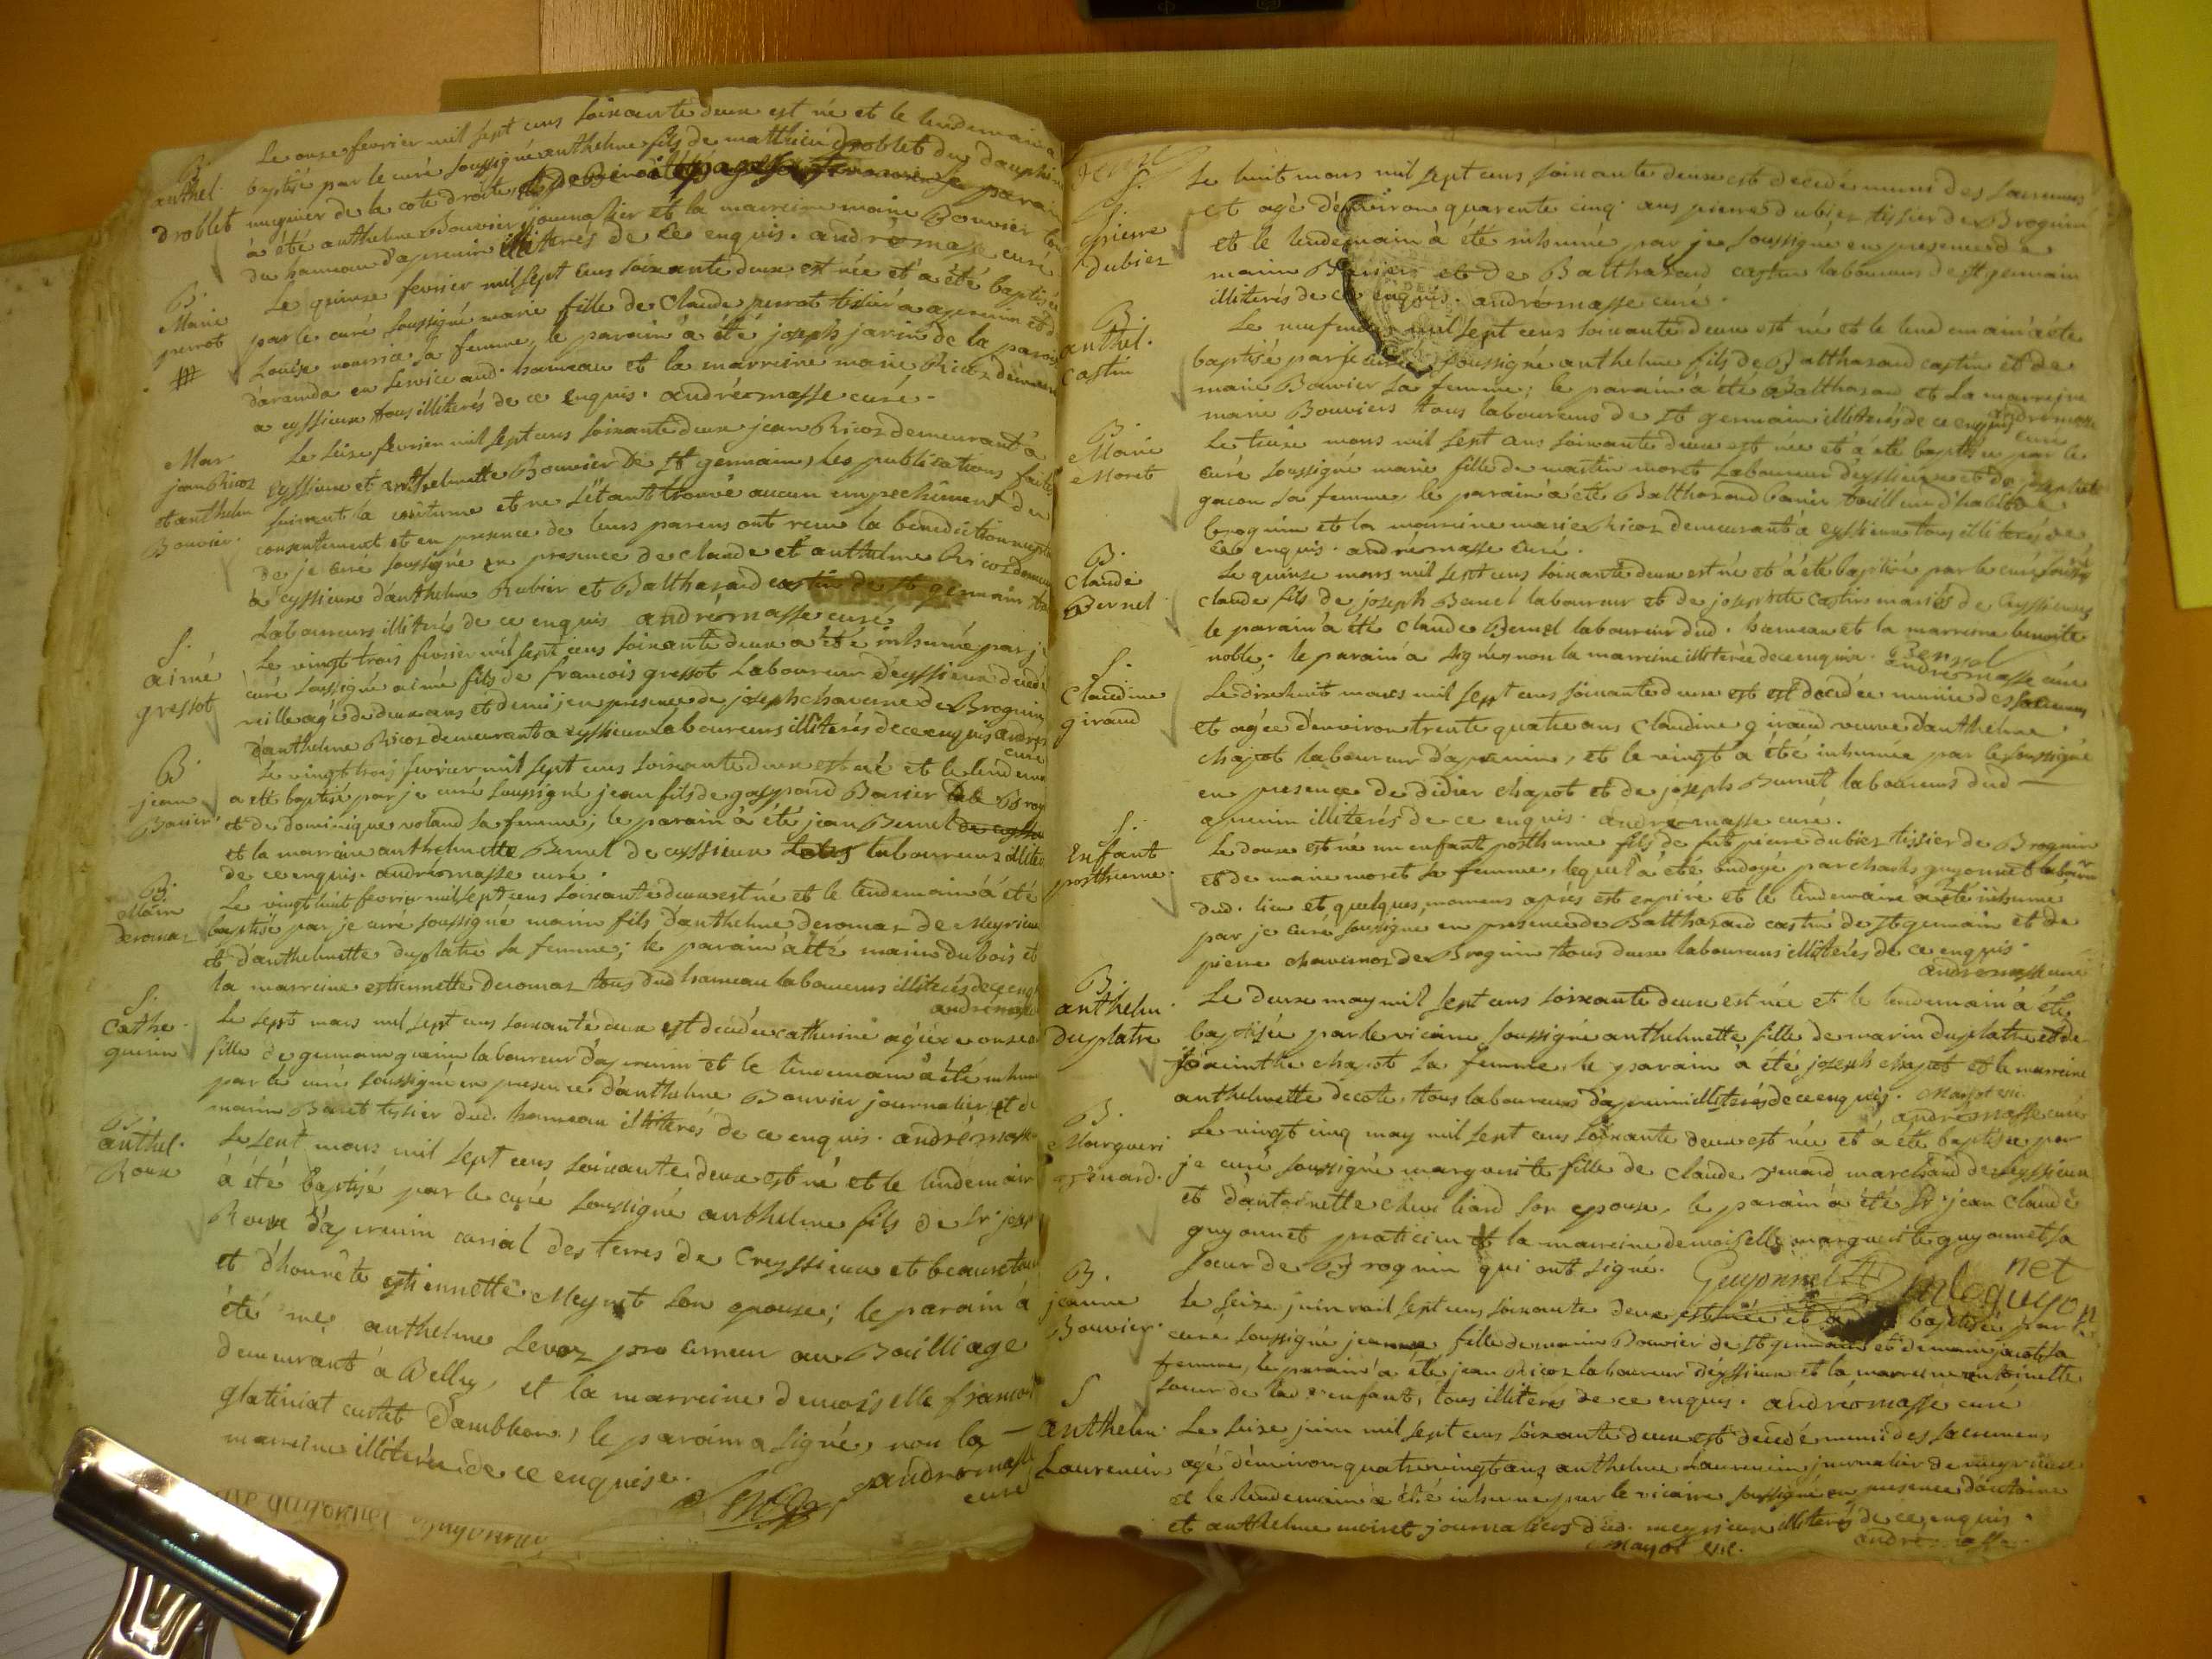 Le onze fevrier mil sept cens soixante deux est né et le lendemain a
B.
anthel.
droblet
baptisé par le curé soussigné anthelme fils de matthieu droblet du dauphiné
mugnier de la cote droite, et de Benoite
à été anthelme Bouvier journalier et la marreine marie Bouvier tous
du hameau d'apremin illiterés de ce enquis. andréomasse curé
B.
Marie
perrot
Le quinze fevrier mil sept cens soixante deux est née et a été baptisée
par le curé soussigné marie fille de Claude perrot tissier a apremin et de
Louise nourrice sa femme, le parain a été joseph jarrin de la paroisse
daranda en service aud. hameau et la marreine marie Ricoz demeurant
a eyssieux tous illiterés de ce enquis. andréomasse curé.
Mar.
jean Ricoz
et anthelm
Bouvier.
Le seize fevrier mil sept cens soixante deux jean Ricoz demeurant à
eyssieux et anthelmette Bouvier de St germain, les publications faites
suivant la coutume et ne s'étant trouvé aucun empechement du
consentement et en presence de leurs parens ont recu la benediction nuptiale
de je curé soussigné en presence de claude et anthelme Ricoz demeurant
à eyssieux d'anthelme Rubier et Balthazard castin de St germain tous
Laboureurs illiterés de ce enquis andréomasse curé
S.
aimé
gressot
Le vingt trois fevrier mil sept cens soixante deux a été inhumé par je
curé soussigné aimé fils de francois gressot Laboureur d'eyssieux decedé
veille agé de deux ans et demi, en presence de joseph chaverne de Brognin
d'anthelme Ricoz demeurant a eyssieux laboureurs illiterés de ce enquis andréo
curé
B.
jean
Barier
Le vingt trois fevrier mil sept cens soixante deux est né et le lendemain
a été baptisé par je curé soussigné jean fils de gaspard Barier de Brog
et de dominique voland sa femme; le parain à été jean Bernel
et la marreine anthelmette Bernel de eyssieux laboureurs illiterés
de ce enquis. andréomasse curé.
B.
Marin
deromaz
Le vingt huit fevrier mil sept cens soixante deux est né et le lendemain à été
baptisé par je curé soussigné marin fils d'anthelme deromaz de Meyrieux
et d'anthelmette duplatre sa femme; le parain à été marin dubois et
la marreine estiennette deromaz tous dud hameau laboureurs illiterés de ce enquis
andréomasse
S.
Cathe.
guerin
Le sept mars mil sept cens soixante deux est decedée catherine agée onze
fille de germain guerin laboureur d'apremin et le lendemain à été inhumée
par le curé soussigné en presence d'anthelme Bouvier journalier et de
marin Baret tissier dud. hameau illiterés de ce enquis. andréomasse
B.
anthel.
Roux
Le sept mars mil sept cens soixante deux est né et le lendemain
à été baptisé par le curé soussigné anthelme fils de Sr joseph
Roux d'apremin curial des terres de Creyssieux et beauretour
et d'honnête estiennette Meynet son epouse; le parain a
été me anthelme Levoz procureur au Bailliage
demeurant à Belley, et la marreine demoiselle françoise
glatiniat d'ambleon, le parain a signé, non la
marreine illiterée de ce enquise.
andréomasse
curé
S.
pierre
dubiez
Le huit mars mil sept cens soixante deux est decedé muni des sacremens
et agé d'environ quarente cinq ans pierre dubiez tissier de Brognin
et le lendemain à été inhumé par je soussigné en presence de
marin Barier et de Balthazard castin laboureurs de St germain
illiterés de ce enquis. andréomasse curé.
B.
anthel.
Castin
Le neuf mars mil sept cens soixante deux est né et le lendemain à été
baptisé par je curé soussigné anthelme fils de Balthazard castin et de
marie Bouvier sa femme; le parain à été Balthazard et La marreine
marie Bouviers tous laboureurs de St germain illiterés de ce enquis andréomasse
curé
B.
Marie
Moret
Le treize mars mil sept cens soixante deux est née et à été baptisée par le
curé soussigné marie fille de martin moret Laboureur d'eyssieux et de josephte
gacon sa femme, le parain à été Balthazard barier tailleur d'habits de
brognin et la marreine marie Ricoz demeurant à eyssieux tous illiterés de
ce enquis. andréomasse curé.
B.
Claude
Bernel
Le quinze mars mil sept cens soixante deux est né et à été baptisé par le curé soussigné
claude fils de joseph Bernel laboureur et de josephte castin mariés de Creyssieux
le parain à été Claude Bernel laboureur dud. hameau et la marreine benoite
noble; le parain a signé, non la marreine illiterée de ce enquise. Bernel
andréomasse curé
S.
Claudine
giraud
Le dixhuit mars mil sept cens soixante deux est decedée munie des sacremens
et agée d'environ trente quatre ans Claudine giraud veuve d'anthelme
chapot laboureur d'apremin, et le vingt a été inhumée par le soussigné
en presence de didier chapot et de joseph Burnet laboureurs dud
apremin illiterés de ce enquis. andréomasse curé.
S.
Enfant
posthume.
Le douze est né un enfant posthume fils de fut pierre dubiez tissier de Brognin
et de marie moret sa femme, lequel à été ondoyé par charls guyonnet laboureur
dud. lieu et quelques momens après est expiré et le lendemain a été inhumé
par je curé soussigné en presence de Balthazard castin de St germain et de
pierre chavernoz de Brognin tous deux laboureurs illiterés de ce enquis.
andréomasse curé
B.
anthelm.
duplatre
Le deux may mil sept cens soixante deux est née et le lendemain à été
baptisée par le vicaire soussigné anthelmette fille de marin duplatre et de
jacinthe chapot sa femme, le parain à été joseph chapot et la marreine
anthelmette decote, tous laboureurs d'apremin illiterés de ce enquis. Mayot vic.
andréomasse curé
B.
Margueri
renard.
Le vingt cinq may mil sept cens soixante deux est née et à été baptisée par
je curé soussigné marguerite fille de Claude renard marchand de Creyssieux
et d'antoinette cheviliard son epouse, le parain à été Sr jean Claude
guyonnet praticien et la marreine demoiselle marguerite guyonnet sa
soeur de Brognin qui ont signé. Guyonnet mleguyonnet
B.
jeanne
Bouvier.
Le seize juin mil sept cens soixante deux est née et à été baptisée par le
curé soussigné jeanne fille de marin Bouvier de St germain et de marie jacob sa
femme, le parain a été jean Ricoz laboureur d'eyssieux et la marreine antoinette
soeur de la enfant, tous illiterés de ce enquis. andréomassé curé
S
anthelm.
Laurencin
Le seize juin mil sept cens soixante deux est decedé muni des sacremens
agé d'environ quatrevingt ans anthelme Laurencin journalier de meyrieux
et le lendemain à été inhumé par le vicaire soussigné en presence d'antoine
et anthelme moiret journaliers dud. meyrieux illiterés de ce enquis.
Mayot vic. andréomasse